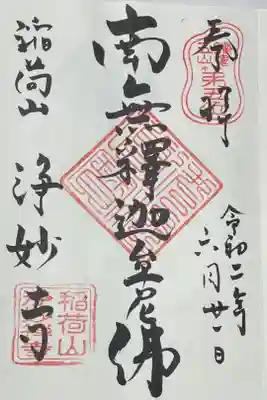 奉拝
令和二年
六月廿一日
南無釋迦牟尼佛
稲荷山
浄妙寺
稲荷山
浄妙寺